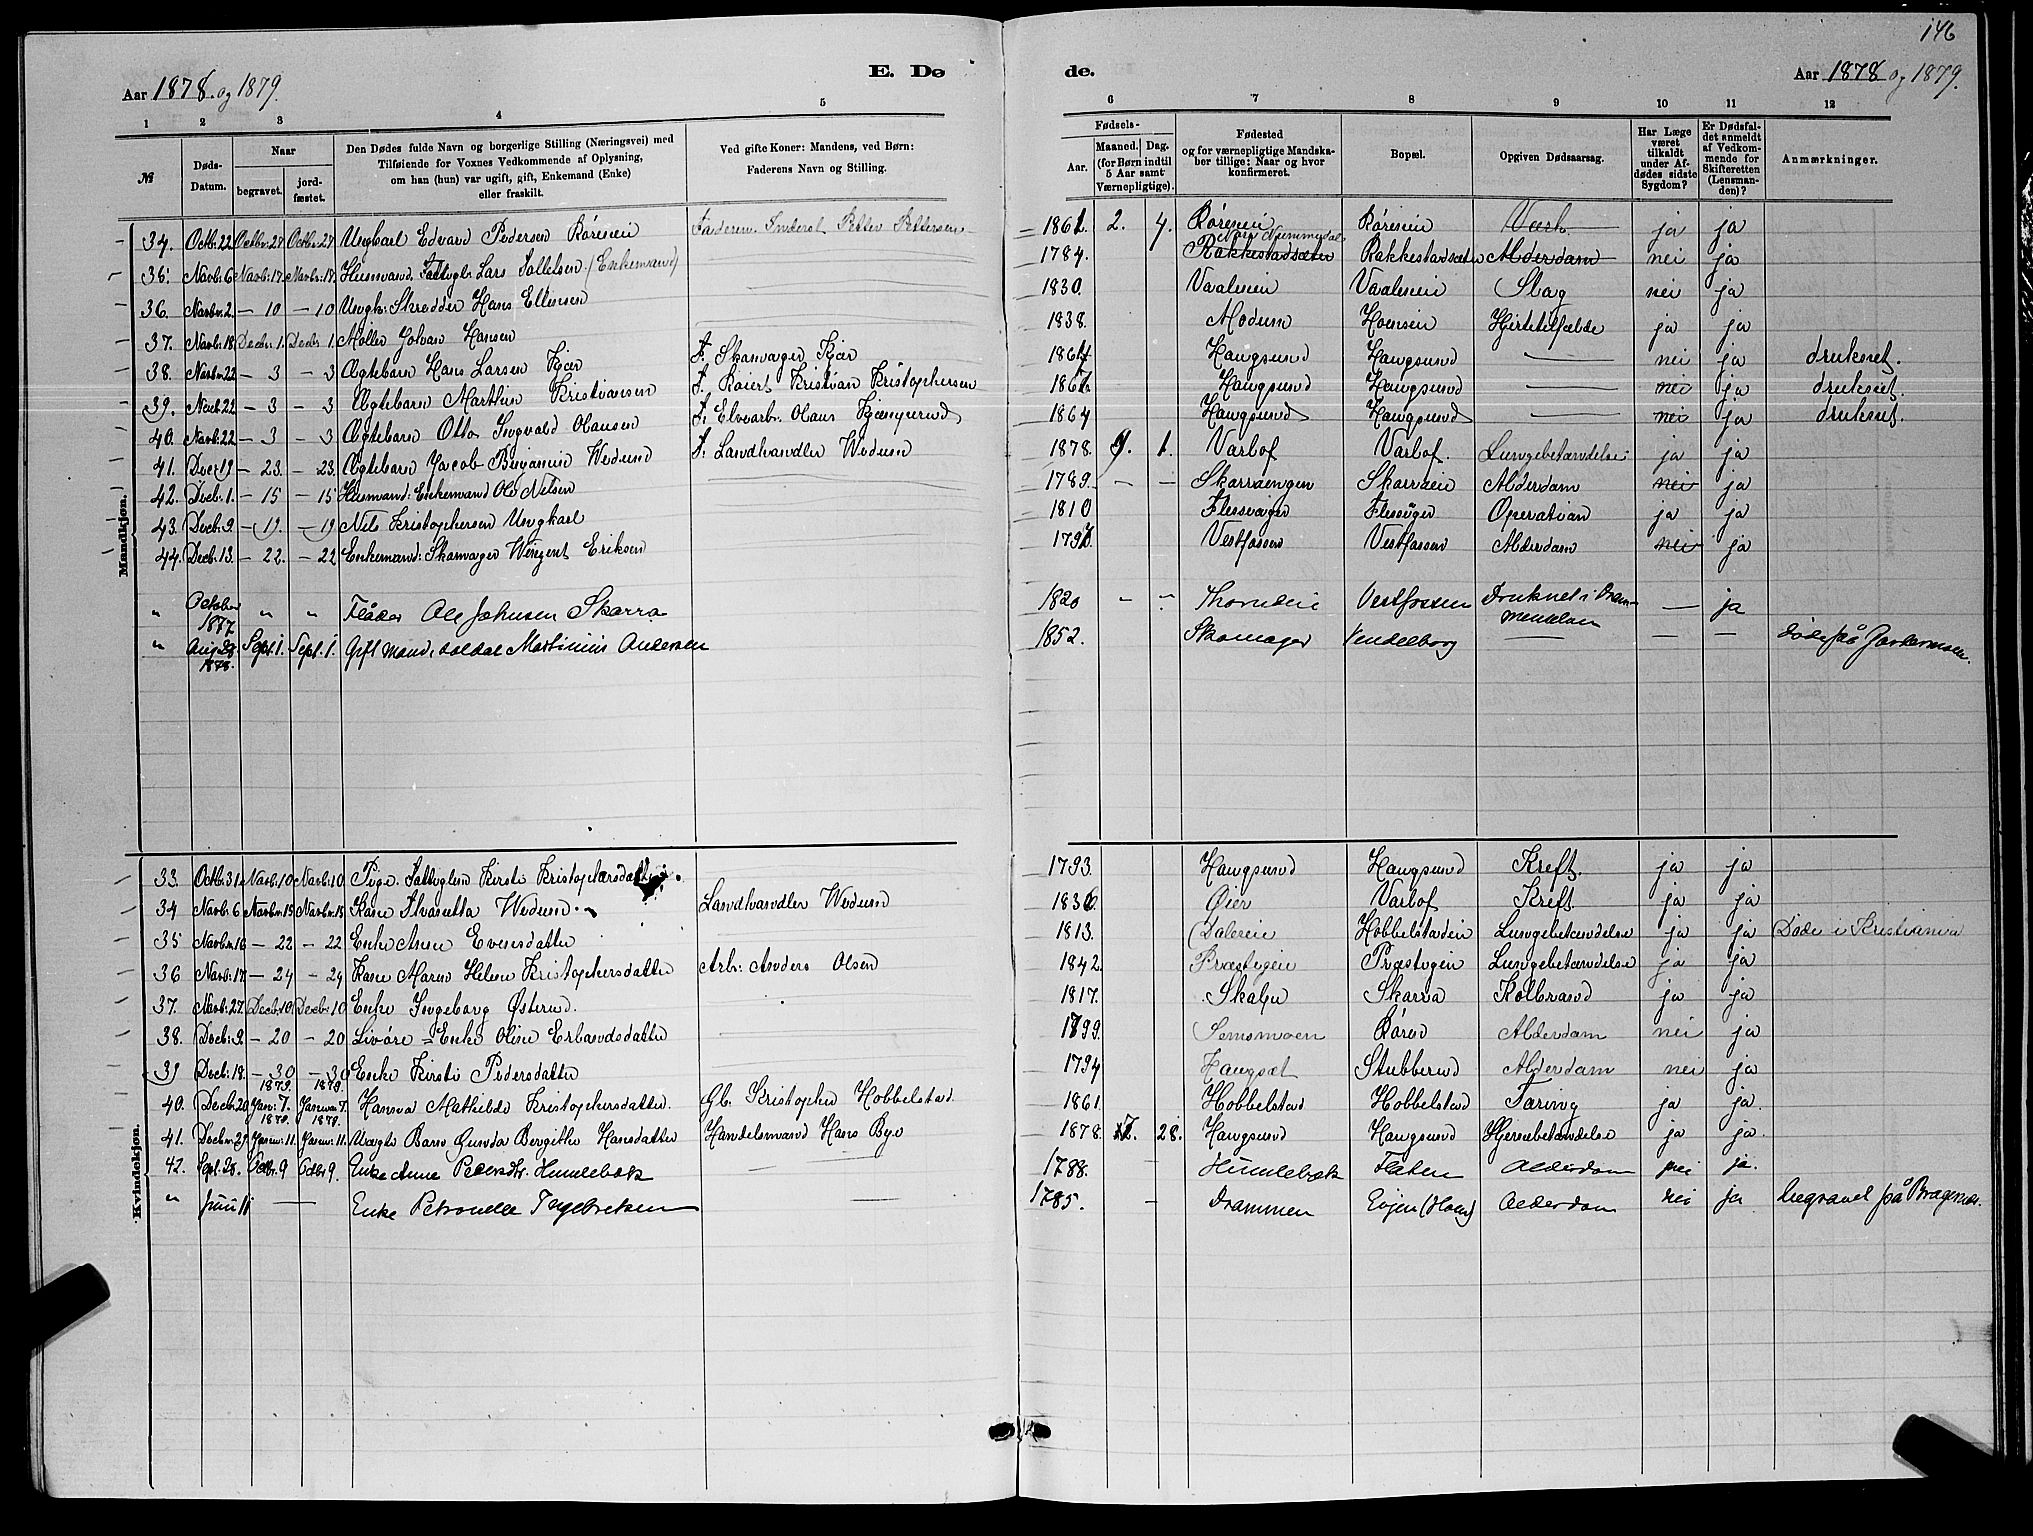 146
Aar 1878 og 1879.
E. Dø
de.
Aar 1878 og 1879.
1 2 3 4 5 6 7 8 9 10 11 12
№
Døds-Datum.
Naar
begravet.
jordfæstet.
Den Dødes fulde Navn og borgerlige Stilling (Næringsvei) med
Tilføiende for Voxnes Vedkommende af Oplysning,
om han (hun) var ugift, gift, Enkemand (Enke)
eller fraskilt.
Ved gifte Koner: Mandens, ved Børn:
Faderens Navn og Stilling.
Fødsels-
Aar.
Maaned. Dag.
(for Børn indtil
5 Aar samt
Værnepligtige).
Fødested
og for værnepligtige Mandska-
ber tillige: Naar og hvor
konfirmeret.
Bopæl.
Opgiven Dødsaarsag.
Har Læge
været
tilkaldt
under Af-
dødes sidste
Sygdom?
Er Dødsfal-
det anmeldt
af Vedkom-
mende for
Skifteretten
(Lensman-
den)?
Anmærkninger.
Mandkjøn.
34. Octb: 22 Octbr: 27 Octbr: 27 Ungkarl Edvard Pedersen Røreneie Faderen Inderst Petter Pettersen 1861 2. 4. Røreneie Røreneie ja ja
35. Novb: 6 Novb: 17 Novbr: 17 Husmand Fattiglr Lars Tollefsen (Enkemand) 1784. Rakkestadsæter Rakkestadsæter Alderdom nei ja
36. Novb: 2. — 10 — 10 Ungk: Skrædder Hans Ellensen 1830. Vaaleneie Vaaleneie Slag nei ja
37. Novb: 18 Decbr. 1. Decbr 1. Møller Golvan Hansen 1838. Modum Hoenseie Hjertefælde ja ja
38. Novbr: 22 — 3 — 3 Ægtebarn Hans Larsen Kjær F. Skomager Kjær 1864 Haugsund Haugsund — nei ja druknet.
39. Novb: 22 — 3 — 3 Ægtebarn Marthin Kristiansen F. Røiert Kristian Kristophersen Haugsund Haugsund — nei ja druknet.
40. Novb: 22 — 3 — 3 Ægtebarn Otto Ingvald Olausen F. Elvearb: Olaus 1864 Haugsund Haugsund — nei ja druknet.
41. Dec: 19 — 23. — 23. Ægtebarn Jacob Benjamin Wedum F. Landhandler Wedum 1878. 9. 1. Varlof Varlof. Lungebetændelse ja ja
42. Decb: 1. — 15 — 15 Husmand: Enkemand Ole Nilsen 1789. — — Skarraengen Skarraeie Alderdom nei ja
43. Decb: 9. — 19. — 19 Nils Kristophersen Ungkarl 1810 Flessager Flessager Operation ja ja
44. Decb: 13. — 22. — 22 Enkemand: Skomager Wingent Eriksen Vestfossen Vestfossen Alderdom nei ja
" October 1877 " " Fløder Ole Johnsen Skarra 1820 — — Vestfossen Druknet i Dram-
menselven — ja
" Aug: 28 1878 Sept 1. Sept. 1. Gift mand, soldat Martinius Andersen 1852. Skomager Vendelborg — — — døde på Gardermoen.
Kvindekjøn.
33. Octb: 31 Novb: 10 Novb: 10 Pige. Fattiglem Kirsti Kristophersdatter. 1793. Haugsund Haugsund Kreft. ja ja
34 Novb: 6 Novbr 15 Novbr: 15 Kone Wedum Landhandler Wedum 1836 Øier Varlof Kreft ja ja
35 Novb: 16 — 22 — 22 Enke Anne Evensdatter 1813. Daleeie Hobbelstadeie Lungebetændelse ja ja Døde i Kristiania
36 Novb: 17. — 24 — 24 Kone Maren Helene Kristophersdatter Arb: Anders Olsen 1842. Præstegeie Præstegeie Lungebetændelse ja ja
37. Novb: 27. Decb: 10 Decbr 10 Enke Ingeborg Østerud. 1817. Skalsn Skarra Koldbrand ja ja
38. Decb: 9. — 20 — 20 Livøre = Enke Oline Erlandsdatter 1799. Semsmoen Røren Alderdom nei ja
39 Decb: 18. — 30 — 30 Enke Kirsti Pedersdatter 1794 Haugsæt Stubberud Alderdom nei ja
40. Decb: 20 1879. Jan: 7. 1879. Januar 7. Hansna Mathilde Kristophersdatter. Gb. Kristopher Hobbelstad 1861. Hobbelstad Hobbelstad Tæring ja ja.
41. Decbr: 29 1879. Janu: 11. 1879. Janu: 11. Uægte Barn Gunda Bergitte Hansdatter Handelsmand Hans Bye 1878. 12. 28. Haugsund Haugsund Hjernebetændelse ja ja.
42. Sept. 28. Octbr 9 Octbr 9. Enke Anne Pedersdtr. Humlebæk — 1788. — Humlebæk Flaten Alderdom nei ja.
" Juni 11 — Enke Petronelle Ingebretsen — 1785. — Drammen Eigen (Hoen) Alderdom nei ja begravet på Bragernæs.